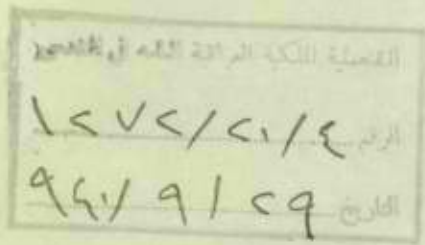 القنصلية الملكية العراقية العامة في القدس
الرقم ١٢٧٢/٢٠/٤
التاريخ ٩٤١/ ٩ / ٢٩